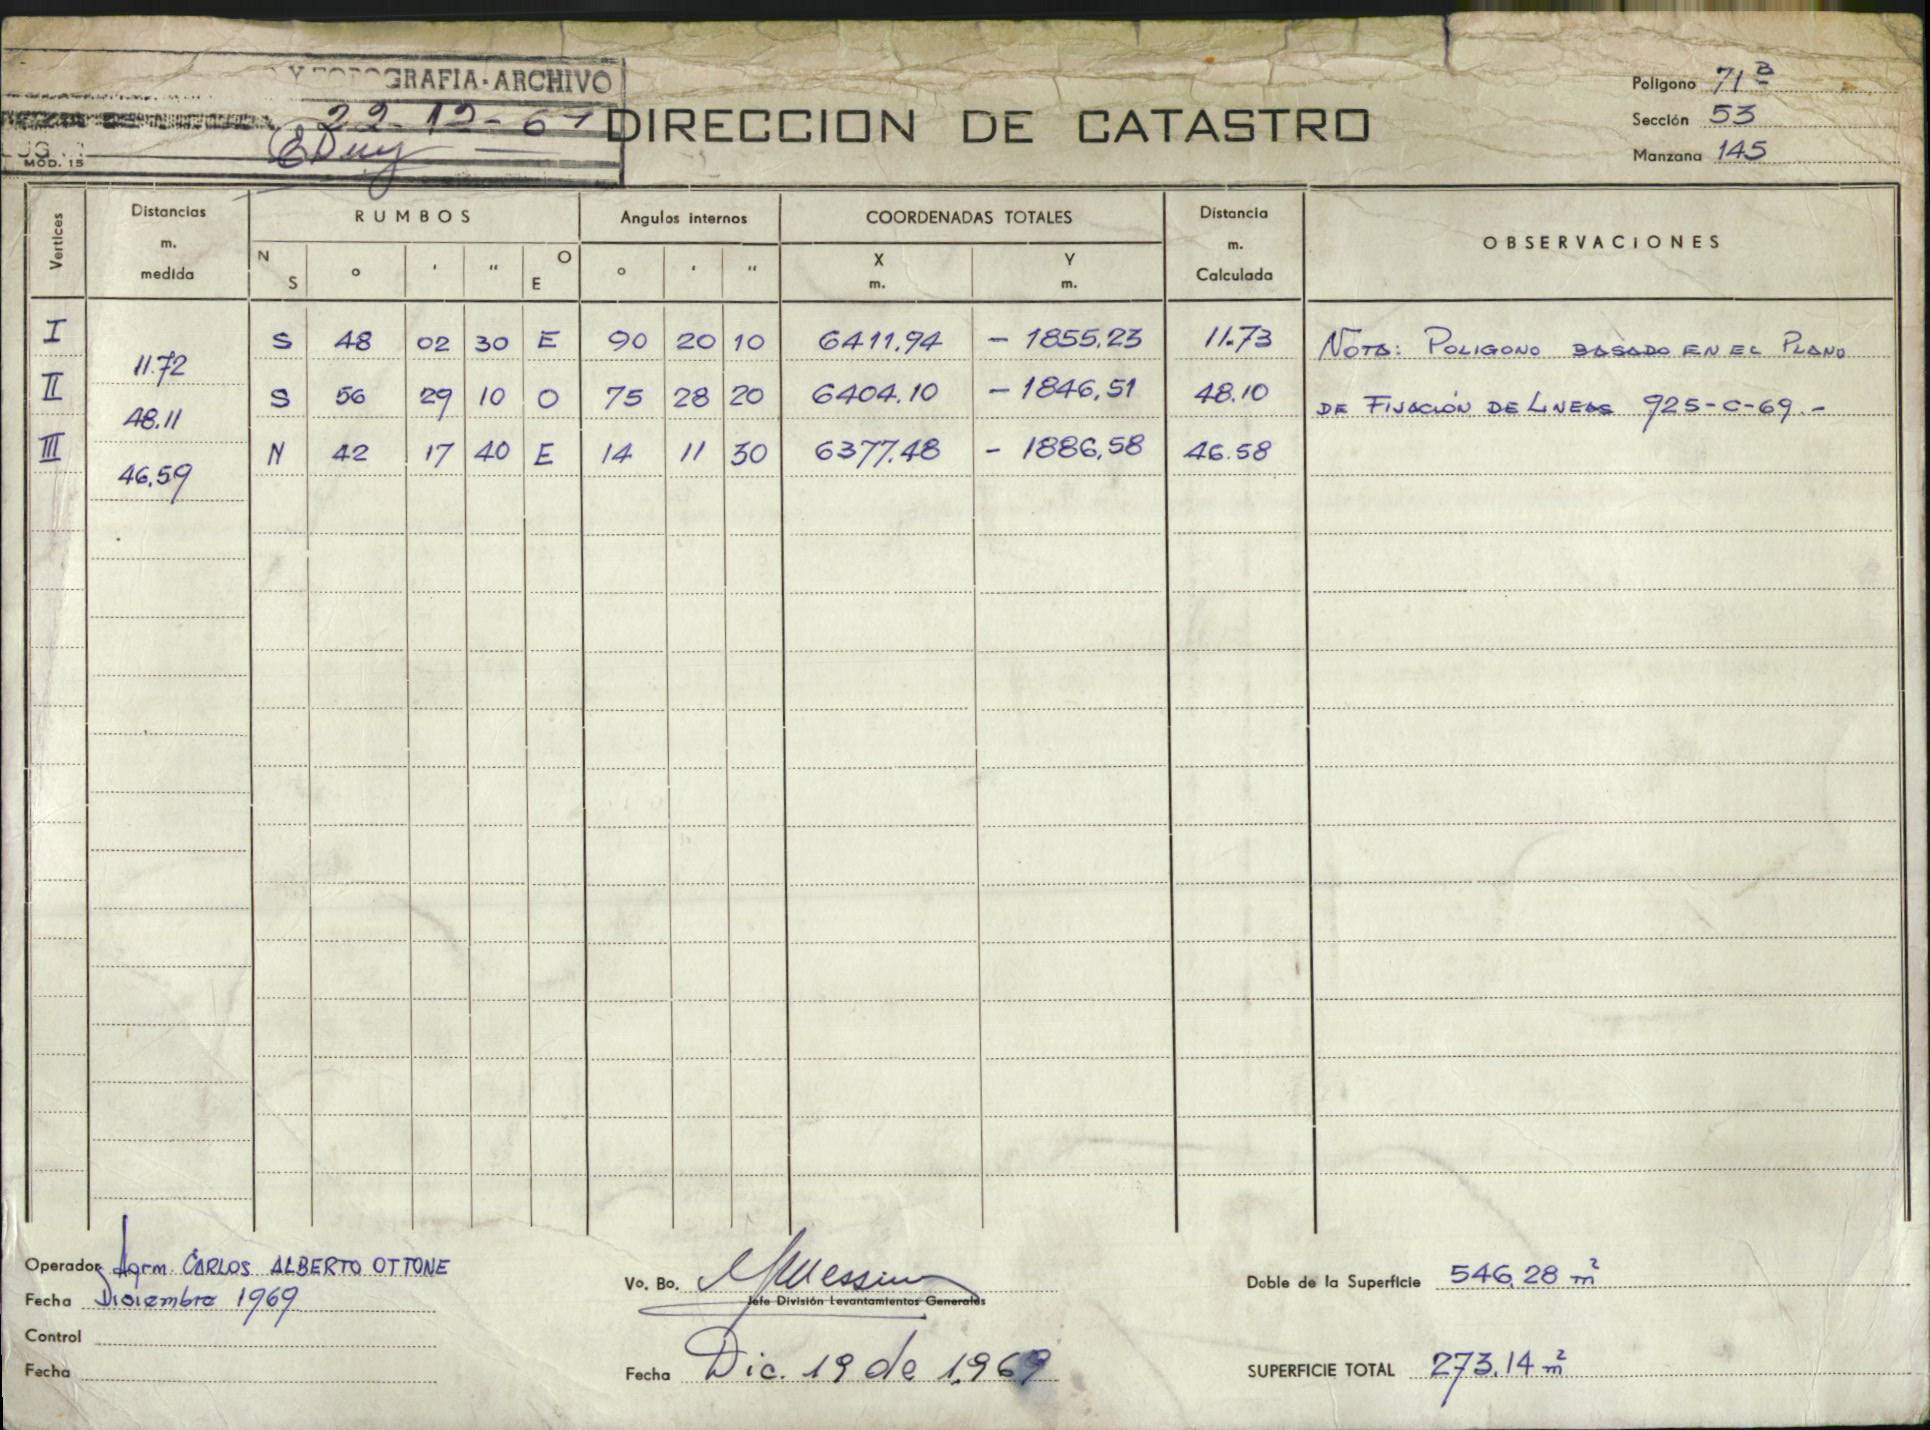 Y TOPOGRAFIA-ARCHIVO
22-12-69
MOD. 15
DIRECCION DE CATASTRO
Polígono 71 B
Sección 53
Manzana 145
Vertices Distancias m. medida RUMBOS N S ° ' " O E Angulos internos ° ' " COORDENADAS TOTALES X m. Y m. Distancia m. Calculada OBSERVACIONES
I S 48 02 30 E 90 20 10 6411.94 - 1855.23 11.73 NOTA: POLIGONO BASADO EN EL PLANO
11.72
II S 56 29 10 O 75 28 20 6404.10 - 1846,51 48.10 DE FIJACIÓN DE LINEAS 925-C-69.-
48.11
III N 42 17 40 E 14 11 30 6377.48 - 1886,58 46.58
46.59
Operador Agrm. CARLOS ALBERTO OTTONE
Fecha Diciembre 1969
Control
Fecha
Vo. Bo.
Jefe División Levantamientos Generales
Fecha Dic. 19 de 1,969
Doble de la Superficie 546,28 m²
SUPERFICIE TOTAL 273.14 m²